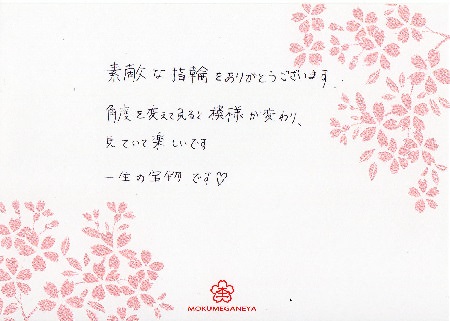 素敵な指輪をありがとうございます。
角度を変えて見ると模様が変わり、
見ていて楽しいです
一生の宝物です♡
MOKUMEGANEYA